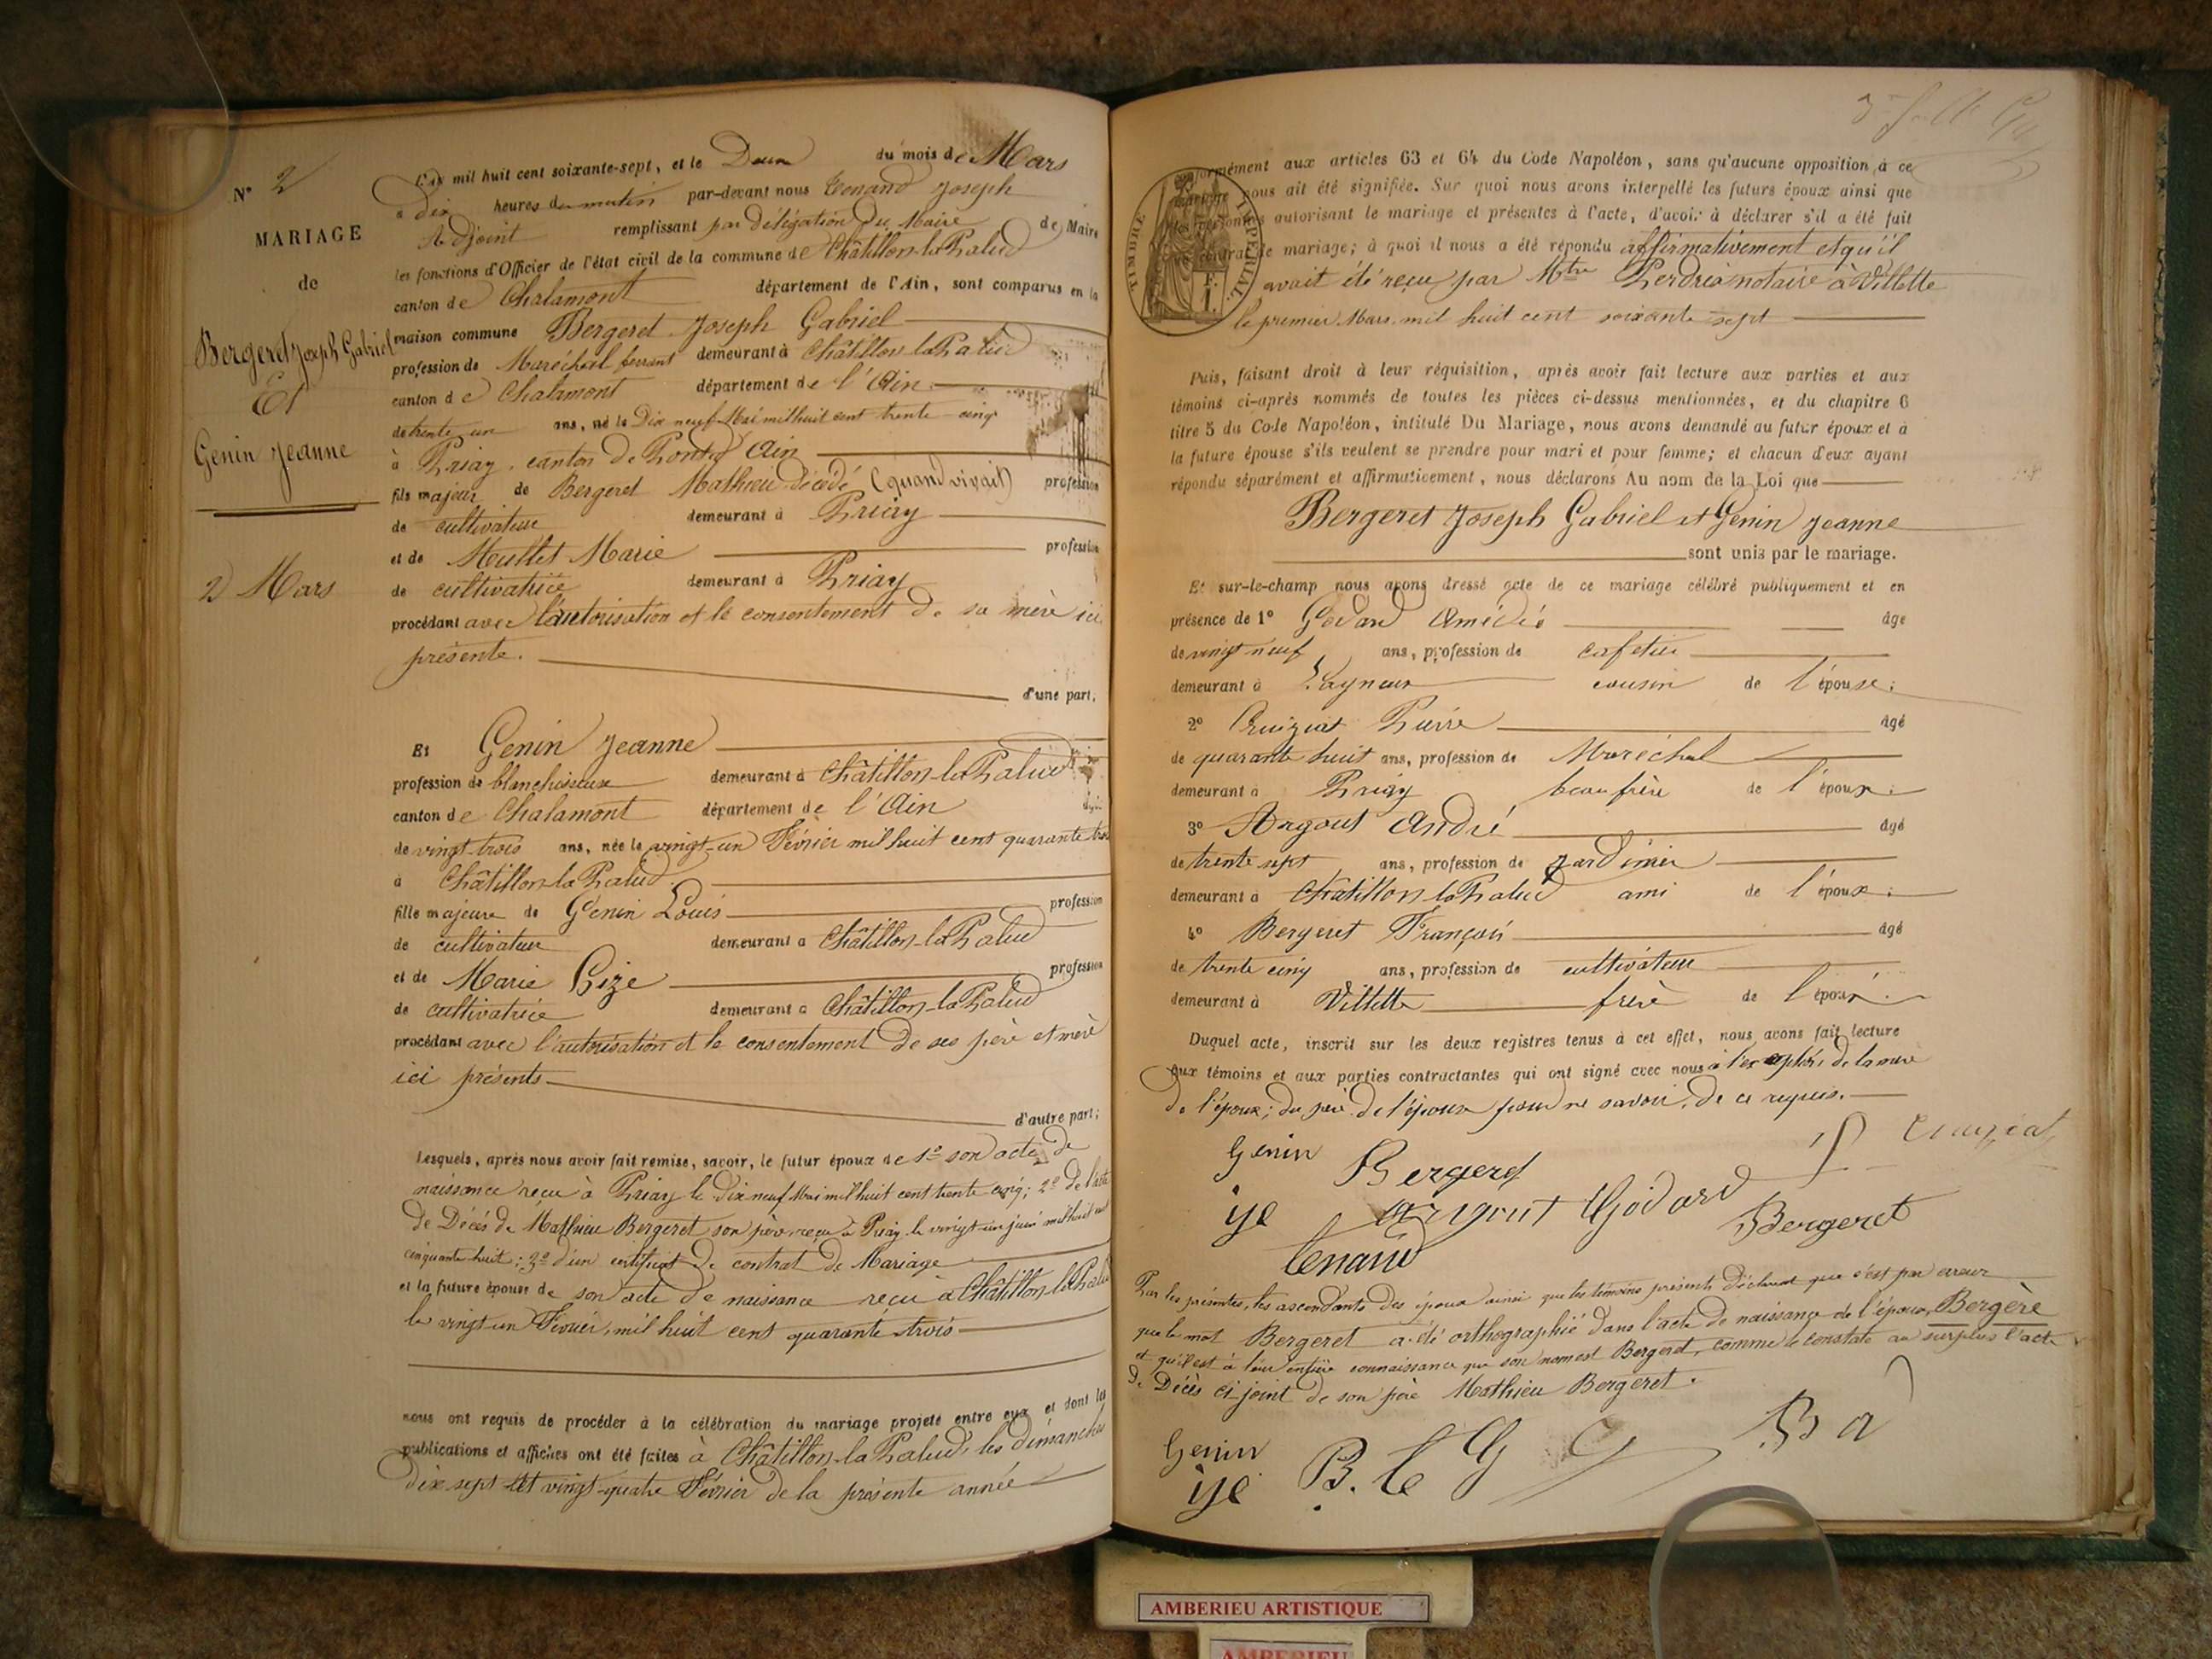 N° 2
MARIAGE
de
Bergeret Joseph Gabriel
Et
Genin Jeanne
2 Mars
L'an mil huit cent soixante-sept, et le Deux du mois de Mars
à dix heures du matin par-devant nous Tenand Joseph
Adjoint remplissant par délégation du Maire de Maire
les fonctions d'Officier de l'état civil de la commune de Châtillon-la-Palud
canton de Chalamont département de l'Ain, sont comparus en la
maison commune Bergeret Joseph Gabriel
profession de Maréchal ferrant demeurant à Châtillon la Palud
canton de Chalamont département de l'Ain
de trente un ans, né le Dix neuf Mai mil huit cent trente cinq
à Priay, canton de Pont d'Ain
fils majeur de Bergeret Mathieu décédé (quand vivait) profession
de cultivateur demeurant à Priay
et de Mullet Marie profession
de cultivatrice demeurant à Priay
procédant avec l'autorisation et le consentement de sa mère ici
présente.
d'une part,
Et Genin Jeanne
profession de blanchisseuse demeurant à Châtillon-la-Palud
canton de Chalamont département de l'Ain
de vingt-trois ans, née le vingt-un Février mil huit cent quarante trois
à Châtillon-la-Palud
fille majeure de Genin Louis profession
de cultivateur demeurant à Châtillon-la-Palud
et de Marie Pize profession
de cultivatrice demeurant à Châtillon-la-Palud
procédant avec l'autorisation et le consentement de ses père et mère
ici présents
d'autre part;
Lesquels, après nous avoir fait remise, savoir, le futur époux de 1° son acte de
naissance reçu à Priay le dix neuf Mai mil huit cent trente cinq; 2° de l'acte
de Décès de Mathieu Bergeret son père reçu à Priay le vingt-un juin mil huit cent
cinquante-huit; 3° d'un certificat de contrat de Mariage
et la future épouse de son acte de naissance reçu à Châtillon-la-Palud
le vingt-un Février, mil huit cent quarante-trois
nous ont requis de procéder à la célébration du mariage projeté entre eux et dont les
publications et affiches ont été faites à Châtillon-la-Palud, les dimanches
dix sept et vingt-quatre Février de la présente année
TIMBRE IMPERIAL
conformément aux articles 63 et 64 du Code Napoléon, sans qu'aucune opposition à ce
mariage nous ait été signifiée. Sur quoi nous avons interpellé les futurs époux ainsi que
les personnes autorisant le mariage et présentes à l'acte, d'avoir à déclarer s'il a été fait
contrat de mariage; à quoi il nous a été répondu affirmativement et qu'il
avait été reçu par Mtre Perdrix notaire à Villette
le premier Mars mil huit cent soixante sept
Puis, faisant droit à leur réquisition, après avoir fait lecture aux parties et aux
témoins ci-après nommés de toutes les pièces ci-dessus mentionnées, et du chapitre 6
titre 5 du Code Napoléon, intitulé Du Mariage, nous avons demandé au futur époux et à
la future épouse s'ils veulent se prendre pour mari et pour femme; et chacun d'eux ayant
répondu séparément et affirmativement, nous déclarons Au nom de la Loi que
Bergeret Joseph Gabriel et Genin Jeanne
sont unis par le mariage.
Et sur-le-champ nous avons dressé acte de ce mariage célébré publiquement et en
présence de 1° Godard Amédée âgé
de vingt neuf ans, profession de cafetier
demeurant à cousin de l'épouse;
2° Cruiziat Pierre âgé
de quarante huit ans, profession de Maréchal
demeurant à Priay beau frère de l'époux;
3° Argout André âgé
de trente sept ans, profession de jardinier
demeurant à Châtillon la Palud ami de l'époux;
4° Bergeret François âgé
de trente cinq ans, profession de cultivateur
demeurant à Villette frère de l'époux.
Duquel acte, inscrit sur les deux registres tenus à cet effet, nous avons fait lecture
aux témoins et aux parties contractantes qui ont signé avec nous à l'exception de la mère
de l'époux; du père de l'épouse pour ne savoir, de ce requis.
Genin Bergeret Cruiziat
ye Argout Godard Bergeret
Tenand
Par les présentes, les ascendants des époux ainsi que les témoins présents déclarent que c'est par erreur
que le mot Bergeret a été orthographié dans l'acte de naissance de l'époux, Bergère
et qu'il est à leur entière connaissance que son nom est Bergeret, comme le constate au surplus l'acte
de Décès ci joint de son père Mathieu Bergeret.
Genin B. G B a
ye
AMBERIEU ARTISTIQUE
AMBERIEU